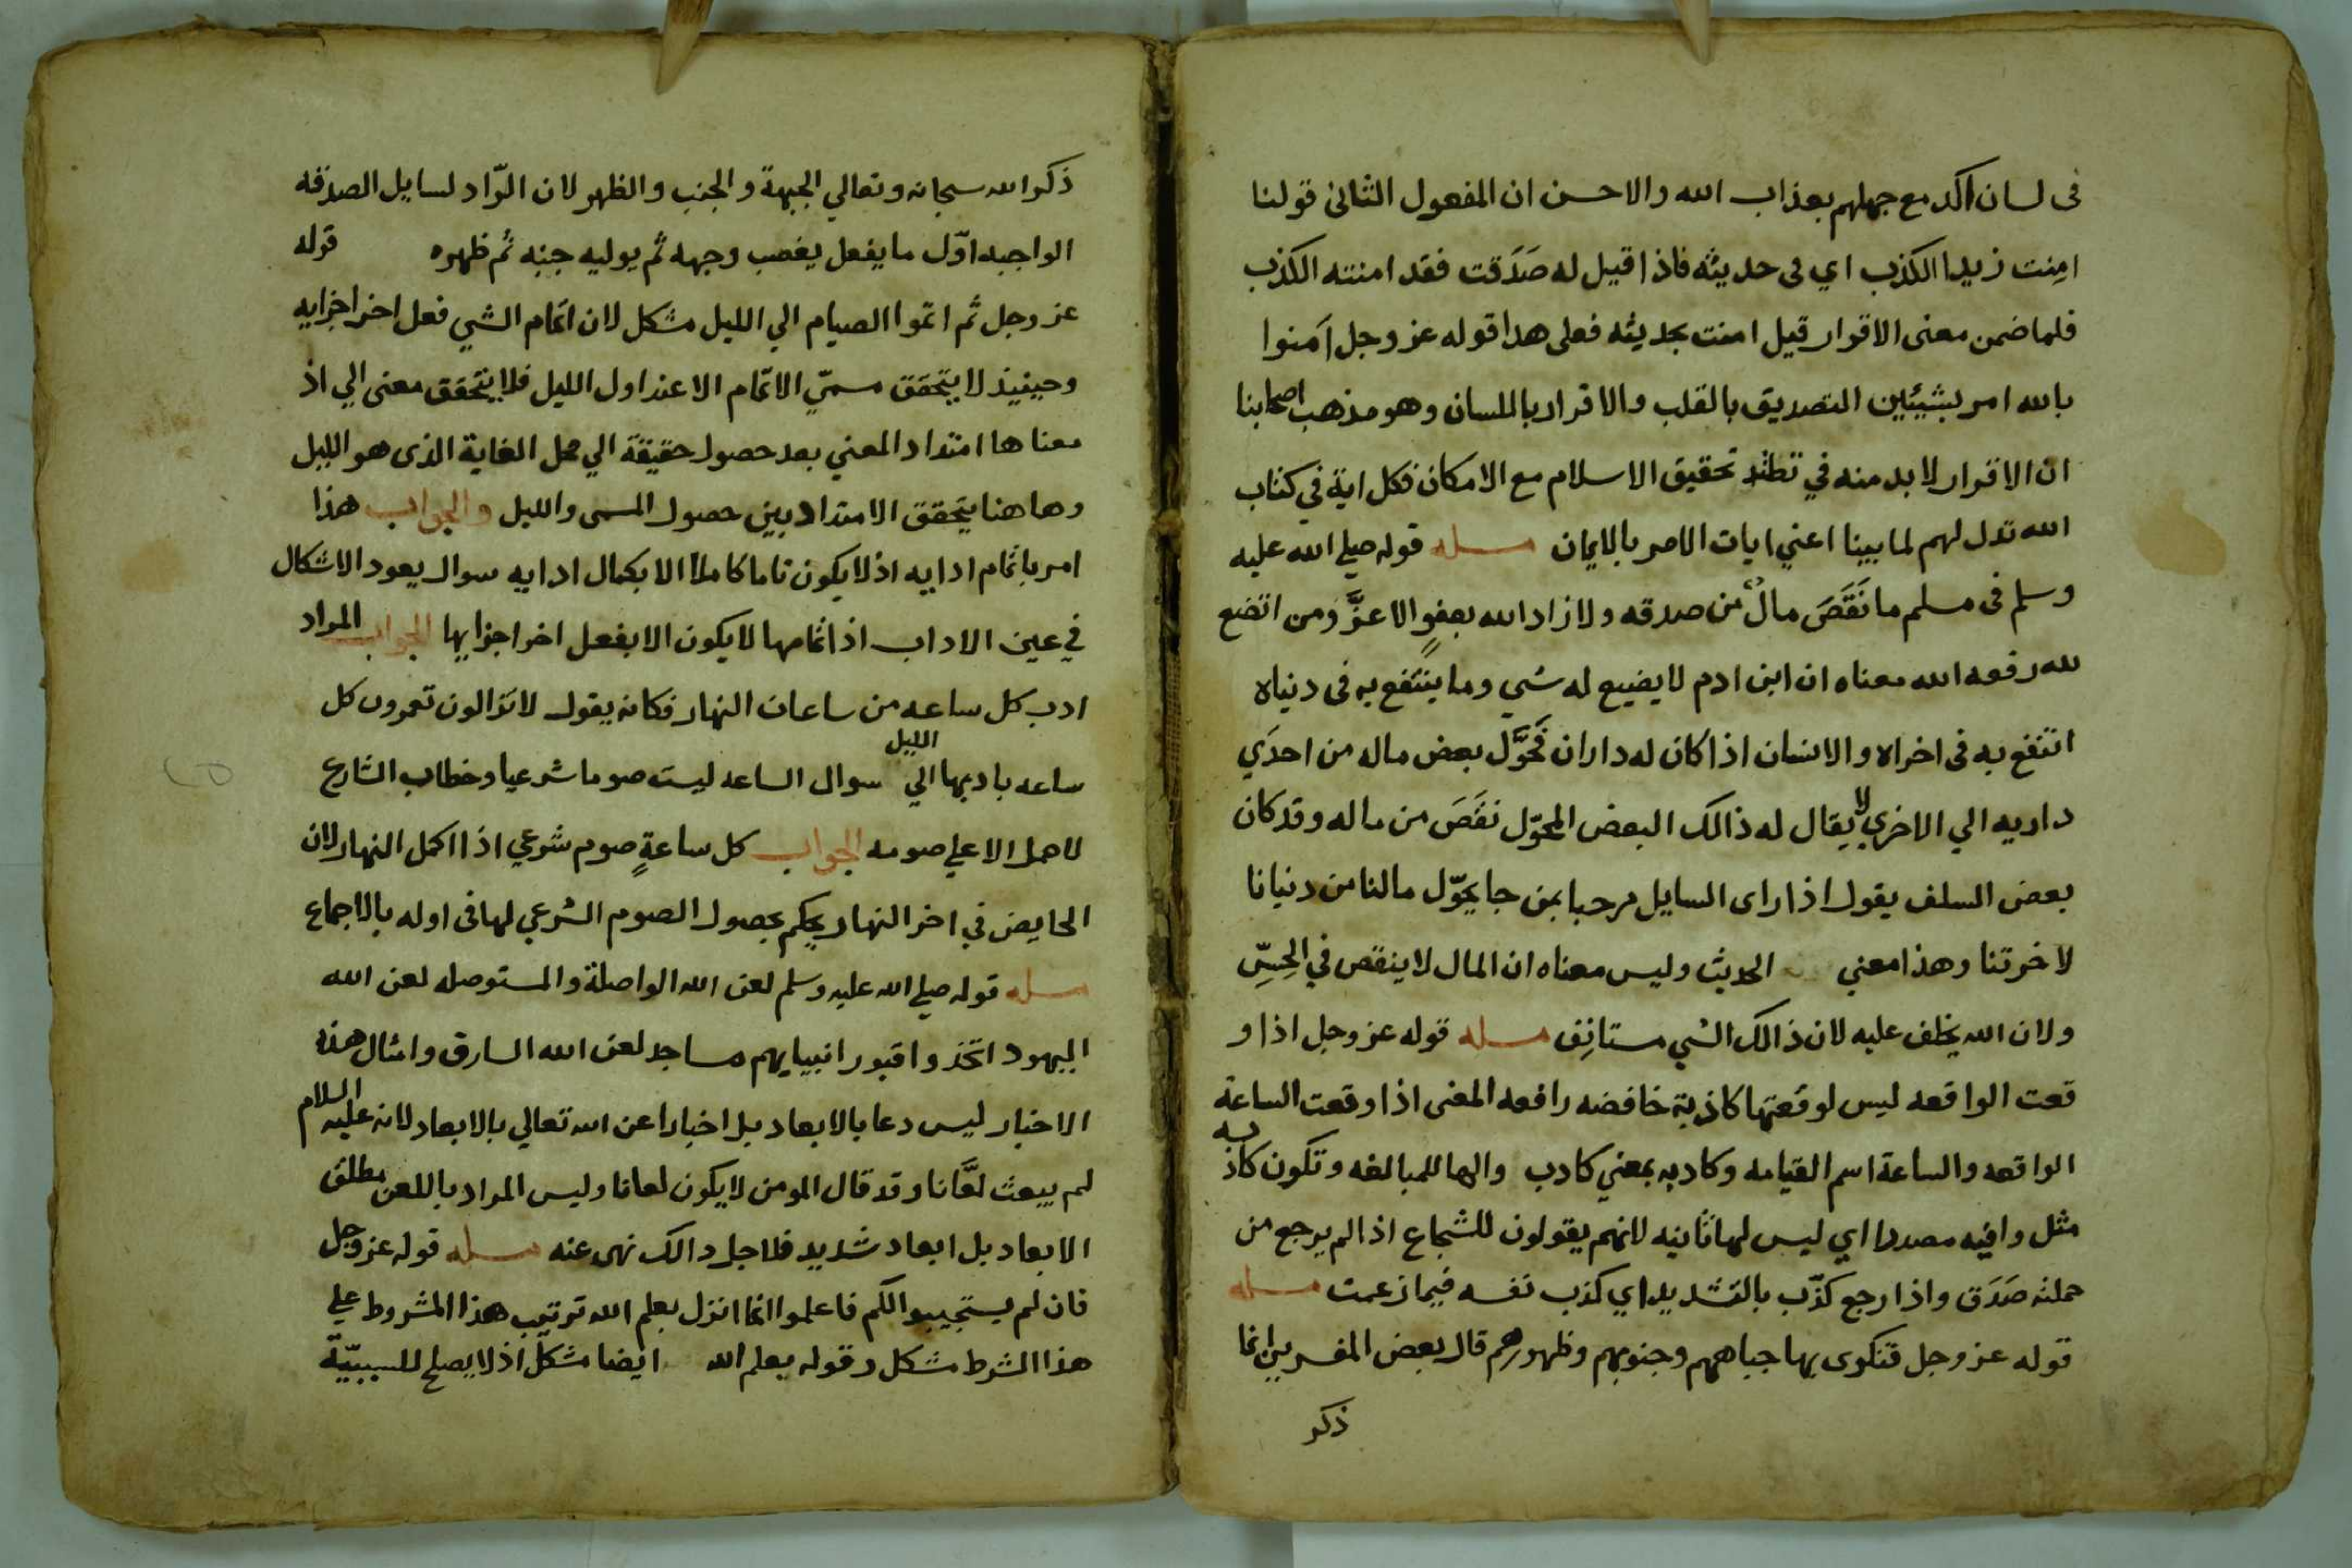 فى لسان اكد مع جهلهم بعذاب الله والاحسن ان المفعول الثانى قولنا
امنت زيدا الكذب اي فى حديثه فاذا قيل له صَدَقت فقد امنته الكذب
فلما ضمن معنى الاقرار قيل امنت بحديثه فعلى هدا قوله عز وجل اَمنوا
بالله امر بشيئين التصديق بالقلب والاقرار باللسان وهو مذهب اصحابنا
ان الاقرار لابد منه في تحقيق الاسلام مع الامكان فكل اية في كتاب
الله تدل لهم لما بينا اعني ايات الامر بالايمان مسله قوله صلى الله عليه
وسلم فى مسلم ما نَقَصَ مالٌ من صدقه ولا زاد الله بعفوٍ الا عزَّ ومن اتضع
لله رفعه الله معناه ان ابن ادم لا يضيع له شي وما ينتفع به فى دنياه
انتفع به فى اخراه والانسان اذا كان له داران فحَوَّل بعض ماله من احدَي
داريه الي الاخري لا يقال له ذالك البعض المحوّل نَقَصَ من ماله وقد كان
بعض السلف يقول اذا راى السايل مرحبا بمن جا يحوّل مالنا من دنيانا
لاخرتنا وهذا معني الحديث وليس معناه ان المال لا ينقص في الحِسِّ
ولان الله يخلف عليه لان ذالك الشي مستانِف مسله قوله عز وجل اذا و
قعت الواقعه ليس لوقعتها كاذبة خافضه رافعه المعنى اذا وقعت الساعة
الواقعه والساعة اسم القيامه وكاد به بمعني كادب والها للمبالغه وتكون كاذبه
مثل وافيه مصددا اي ليس لها ثانيه لانهم يقولون للشجاع اذا لم يرجع من
حملته صَدَق واذا رجع كذّب بالتشديد اي كذب نفسه فيما زعمت مسله
قوله عز وجل فتكوى بها جباههم وجنوبهم وظهورهم قال بعض المفسرين انما
ذكر
ذكر الله سبحانه وتعالي الجبهة والجنب والظهر لان الرّاد لسايل الصدقه
الواجبه اوّل ما يفعل يغصب وجهه ثم يوليه جنبه ثم ظهره قوله
عز وجل ثم اتموا الصيام الي الليل مشكل لان اتمام الشي فعل اخر اجزايه
وحينيذ لا يتحقق مسمّي الاتمام الا عند اول الليل فلا يتحقق معنى الي اذ
معناها امتداد المعني بعد حصول حقيقة الي محل الغاية الذى هو الليل
وها هنا يتحقق الامتداد بين حصول المسمى والليل والجواب هذا
امر باتمام ادابيه اذ لا يكون تاما كاملاً الا بكمال ادابيه سوال يعود الاشكال
في عين الاداب اذ اتمامها لا يكون الا بفعل اخر اجزايها الجواب المراد
ادب كل ساعه من ساعات النهار فكانه يقول لا تزالون تعمرون كل
ساعه بادبها الي الليل سوال الساعه ليست صوما شرعيا وخطاب الشارع
لا حمل الا علي صومه الجواب كل ساعةٍ صوم شرعي اذا اكمل النهار لان
الحايض في اخر النهار يحكم بحصول الصوم الشرعي لها فى اوله بالاجماع
مسله قوله صلي الله عليه وسلم لعن الله الواصلة والمستوصله لعن الله
اليهود اتخذوا قبور انبيايهم مساجد لعن الله السارق وامثال هذه
الاخبار ليس دعا بالابعاد بل اخبارا عن الله تعالي بالابعاد لانه عليه السلام
لم يبعث لعَّانا وقد قال المومن لا يكون لعانا وليس المراد باللعن مطلق
الابعاد بل ابعاد شديد فلاجل دالك نهى عنه مسله قوله عز وجل
فان لم يستجيبوا لكم فاعلموا انما انزل بعلم الله ترتيب هذا المشروط علي
هذا الشرط مشكل وقوله بعلم الله ايضا مشكل اذ لا يصلح للسببيّة